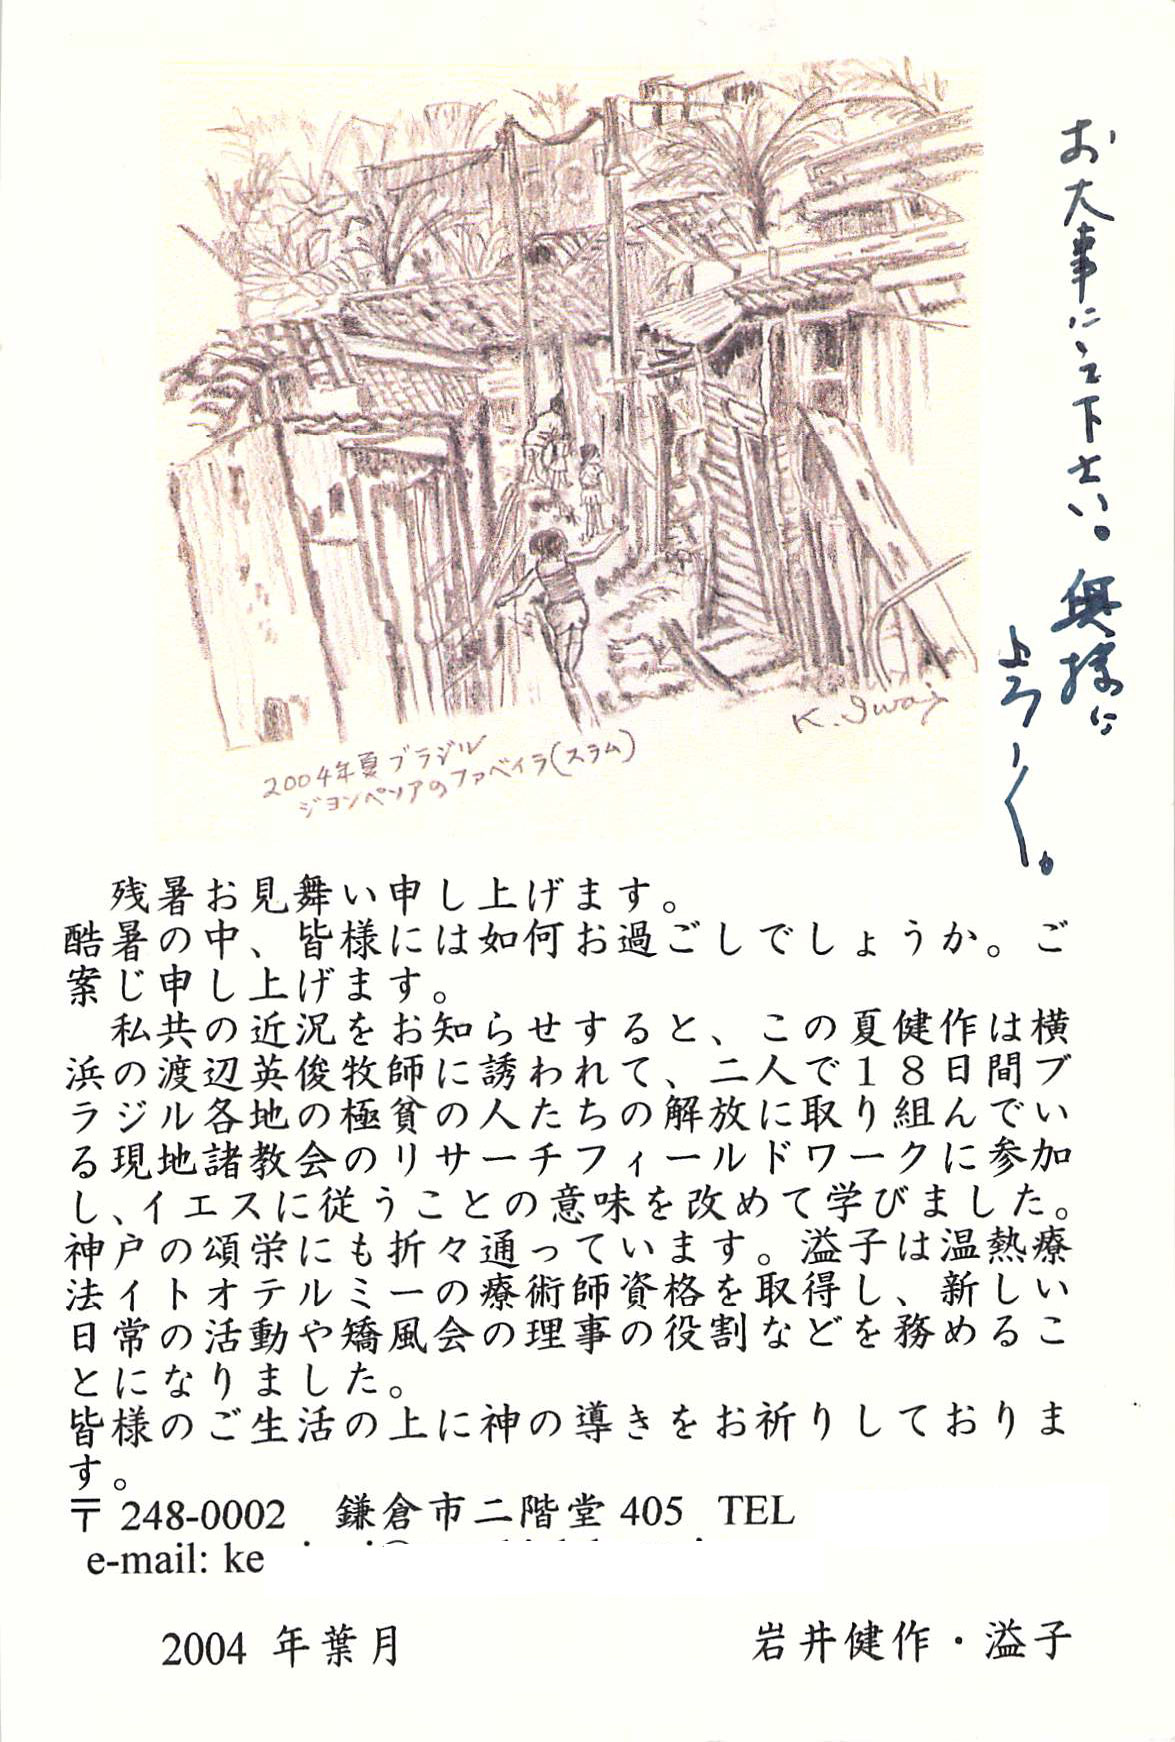 お大事に之下さい。奥様に
よろしく。
K. Iwai
2004年夏 ブラジル
ジョンペソアのファベイラ(スラム)
残暑お見舞い申し上げます。
酷暑の中、皆様には如何お過ごしでしょうか。ご
案じ申し上げます。
私共の近況をお知らせすると、この夏健作は横
浜の渡辺英俊牧師に誘われて、二人で１８日間ブ
ラジル各地の極貧の人たちの解放に取り組んでい
る現地諸教会のリサーチフィールドワークに参加
し、イエスに従うことの意味を改めて学びました。
神戸の頌栄にも折々通っています。溢子は温熱療
法イトオテルミーの療術師資格を取得し、新しい
日常の活動や矯風会の理事の役割などを務めるこ
とになりました。
皆様のご生活の上に神の導きをお祈りしておりま
す。
〒 248-0002 鎌倉市二階堂 405 TEL
e-mail: ke
2004 年葉月 岩井健作・溢子